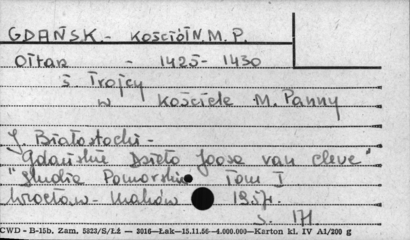 GDAŃSK.- KOŚCIÓŁ N.M.P.
OŁtaR - 1425- 1430
Ś. Trójcy
w Kościele M. Panny
J. Białostocki -
"Gdańskie Dzieło Joosa van Cleve"
"Studia Pomorskie Tom I
Wrocław - Kraków 1957.
s. 171.
CWD - B-15b. Zam. 5823/S/Łż — 3016—Łak—15.11.56—4.000.000—Karton kl. IV A1/200 g